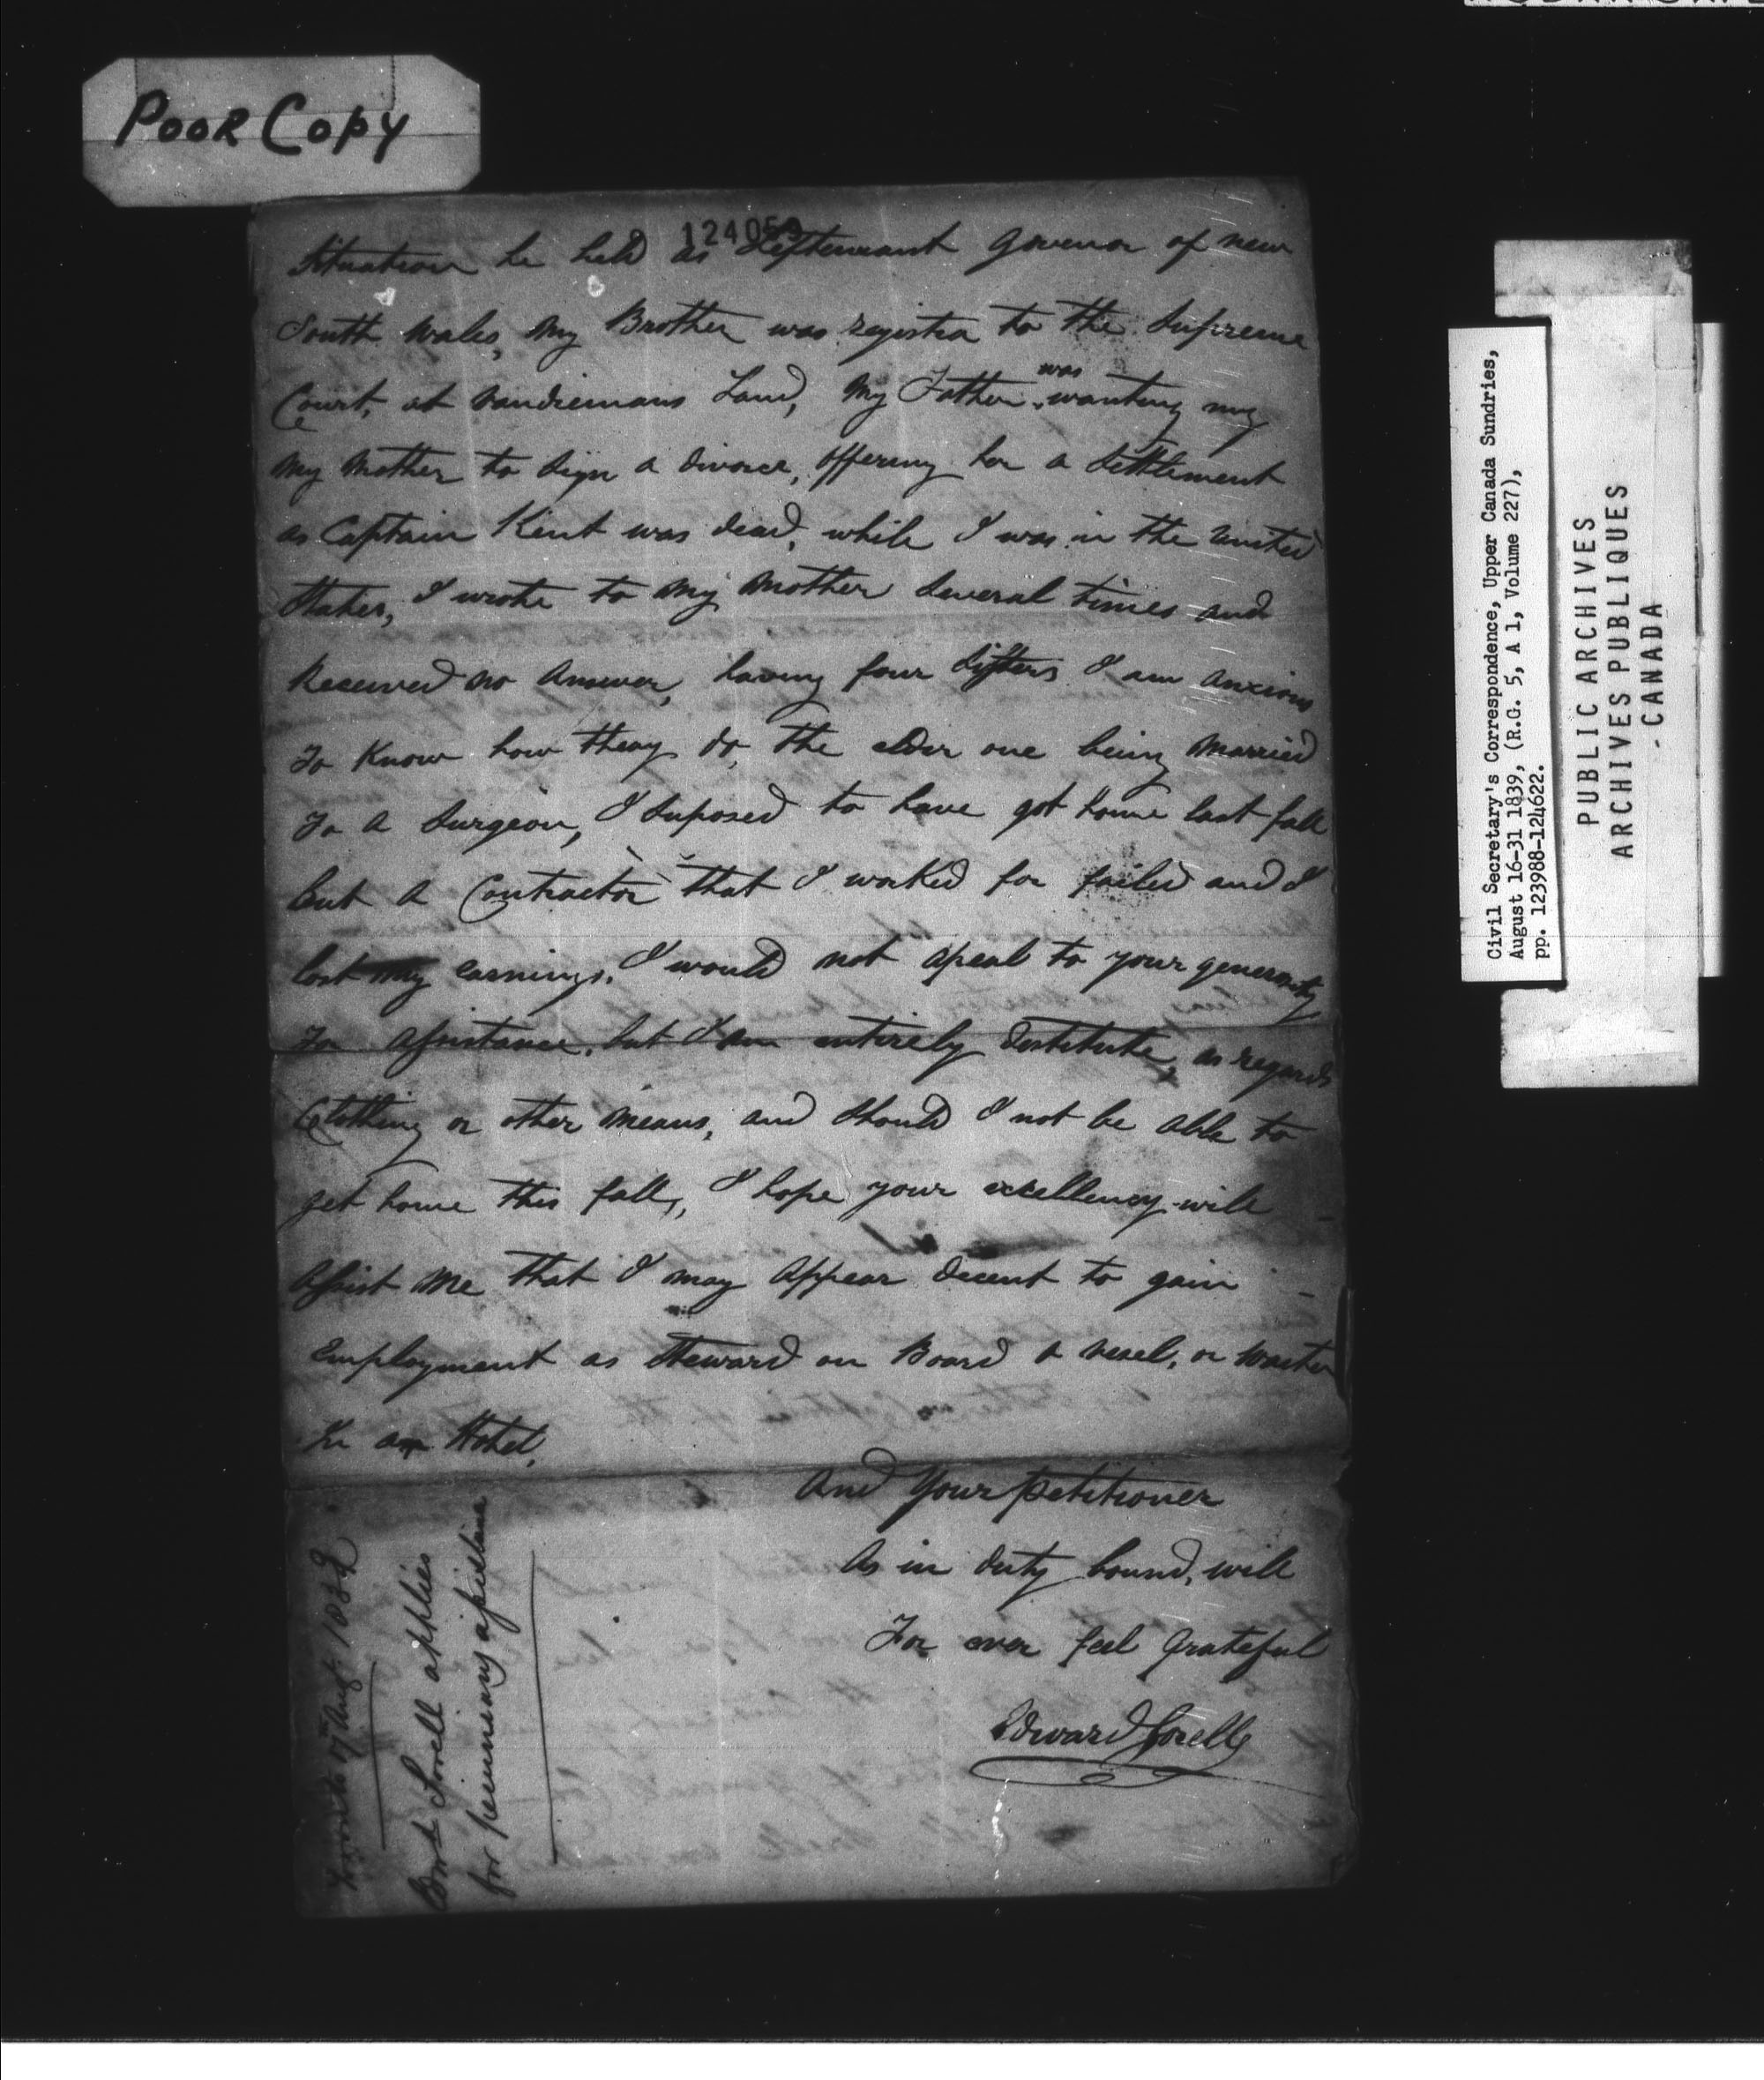 POOR COPY
situation he held as Leftennant Govenor of new
South Wales, My Brother was registra to the Supreme
Court, at Vandiemans Land, My Father was wanting my
My Mother to Sign a divorce, offering her a Settlement
as Captain Kent was dead, while I was in the united
States, I wrote to My Mother Several times and
Received no Answer, having four Sisters I am Anxious
To Know how theay do, the elder one being Married
To a Surgeon, I Suposed to have got home last fall
but a Contractor that I worked for failed and I
lost my earnings, I would not apeal to your generosity
For Assistance, but I am entirely destitute, as regards
Clothing or other Means, and Should I not be Able to
get home this fall, I hope your excellency will
Assist Me that I may Appear decent to gain
Employment as Steward on Board a vesel, or Waiter
In a Hotel,
And Your Petitioner
As in duty bound, will
For ever feel Grateful
Edward Sorell
Toronto 17th Augt 1839
Edwd Sorell applies
for pecuniary assistance
Civil Secretary's Correspondence, Upper Canada Sundries,
August 16-31 1839, (R.G. 5, A 1, Volume 227),
pp. 123988-124622.
PUBLIC ARCHIVES
ARCHIVES PUBLIQUES
- CANADA